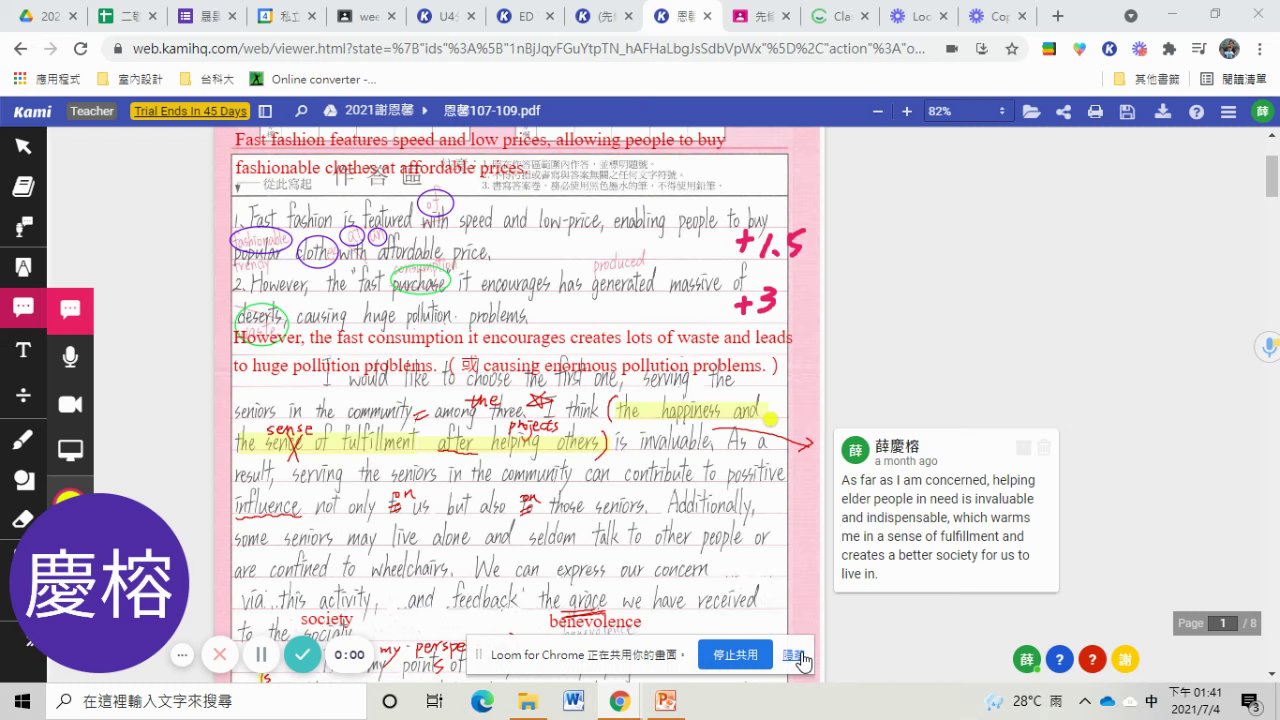 202
二
展
私立
wee
U4
ED
(先
恩馨
先修
Cla
Loc
Cop
web.kamihq.com/web/viewer.html?state=%7B"ids"%3A%5B"1nBjJqyFGuYtpTN_hAFHaLbgJsSdbVpWx"%5D%2C"action"%3A"o...
應用程式 室內設計 台科大 Online converter -... 其他書籤 閱讀清單
Kami Teacher Trial Ends In 45 Days 2021謝恩馨 恩馨107-109.pdf 82% 薛
Fast fashion features speed and low prices, allowing people to buy
fashionable clothes at affordable prices.
從此寫起 作答區
3. 書寫答案卷，務必使用黑色墨水的筆，不得使用鉛筆。
of
1. Fast fashion is featured with speed and low-price, enabling people to buy
fashionable at an +1.5
popular clothe with affordable price.
trendy consumption produced
2. However, the "fast purchase" it encourages has generated massive of
+3
deserts, causing huge pollution problems.
waste
However, the fast consumption it encourages creates lots of waste and leads
to huge pollution problems.（或 causing enormous pollution problems.）
I would like to choose the first one, serving the
the
seniors in the community, among three. I think (the happiness and
sense projects
the sense of fulfillment after helping others) is invaluable. As a
result, serving the seniors in the community can contribute to possitive
on on
influence not only to us but also to those seniors. Additionally,
some seniors may live alone and seldom talk to other people or
are confined to wheelchairs. We can express our concern
via this activity, and feedback the grace we have received
society benevolence
to the
benevolence
my perspe
my point of
is s
薛 薛慶榕
a month ago
As far as I am concerned, helping
elder people in need is invaluable
and indispensable, which warms
me in a sense of fulfillment and
creates a better society for us to
live in.
慶榕
Page 1 / 8
0:00
Loom for Chrome 正在共用你的畫面。 停止共用 隱藏
薛 ? ? 謝
在這裡輸入文字來搜尋
28°C 雨 中 下午 01:41
2021/7/4 3